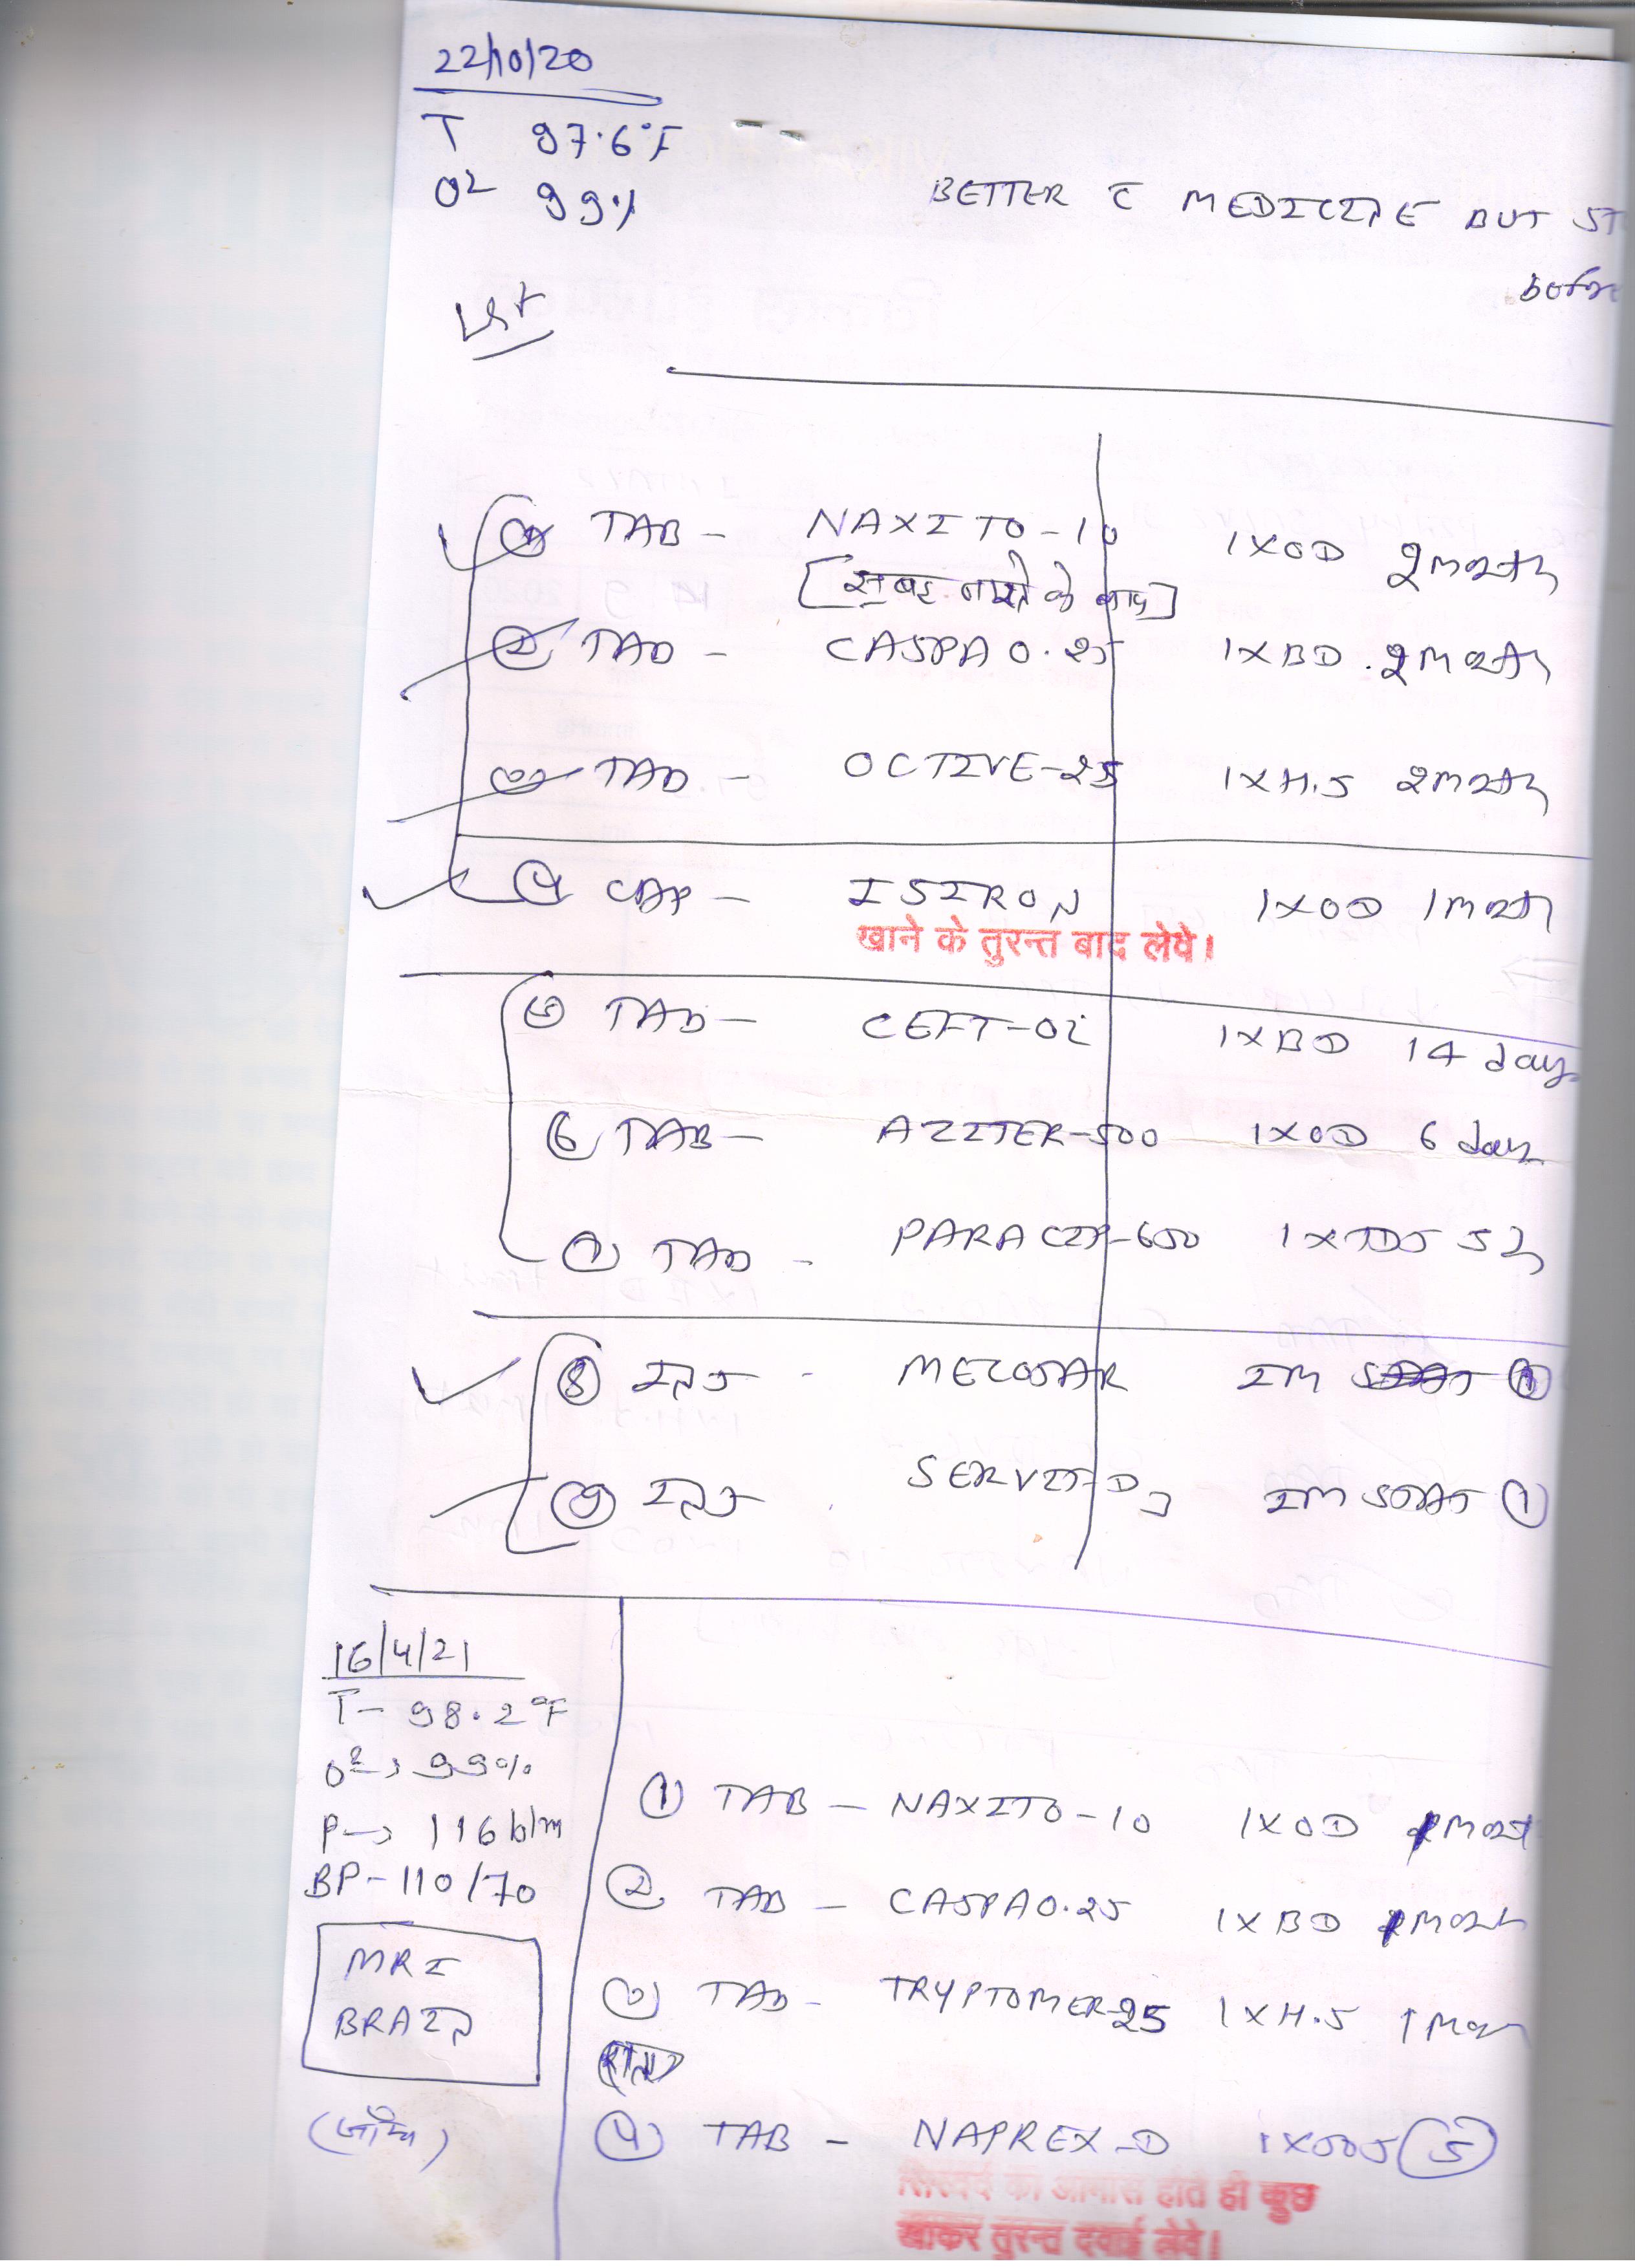 22/10/20
T 97.6°F
O2 99%
BETTER C̄ MEDICINE BUT ST
before
① TAB - NAXITO-10 1XOD 2 month
[सुबह नाश्ते के बाद]
② TAB - CASPA 0.25 1XBD 2 month
③ TAB - OCTIVE-25 1XH.S 2 month
④ CAP - ISIRON 1XOD 1 month
खाने के तुरन्त बाद लेवे।
⑤ TAB - CEFT-OZ 1XBD 14 day
⑥ TAB - AZITER-500 1XOD 6 day
⑦ TAB - PARACIP-650 1XTDS 5
⑧ INJ - IM STAT ①
⑨ INJ - IM STAT ①
16/4/21
T- 98.2°F
O2 → 99%
P → 116 b/m
BP - 110/70
MRI
BRAIN
(जाँच)
① TAB - NAXITO-10 1XOD 1 month
② TAB - CASPA 0.25 1XBD 1 month
③ TAB - TRYPTOMER-25 1XH.S 1 Mon
④ TAB - NAPREX-D 1XSOS ⑤
सिरदर्द का आभास होते ही कुछ
खाकर तुरन्त दवाई लेवे।